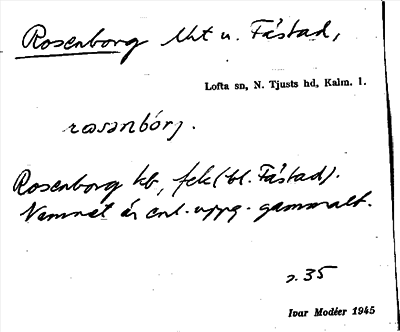 Rosenborg lht u. Fåstad,
Lofta sn, N. Tjusts hd, Kalm. l.
rosənbórj.
Rosenborg kb, fek (bl. Fåstad).
Namnet är enl. uppg. gammalt.
s. 35
Ivar Modéer 1945